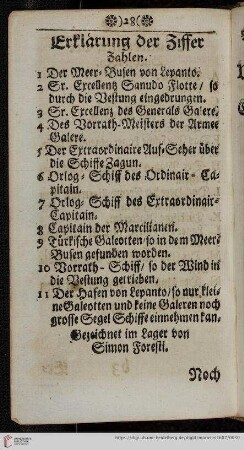 )28(
Erklärung der Ziffer
Zahlen.
1 Der Meer-Busen von Lepanto.
2 Sr. Excellentz Sanudo Flotte/ so
durch die Vestung eingedrungen.
3 Sr. Excellenz des Generals Galere.
4 Des Vorrath-Meisters der Armee
Galere.
5 Der Extraordinaire Auf-Seher über
die Schiffe Zagun.
6 Orlog-Schiff des Ordinair-Ca-
pitain.
7 Orlog-Schiff des Extraordinair-
Capitain.
8 Capitain der Marcilianen.
9 Türkische Galeotten so in dem Meer-
Busen gefunden worden.
10 Vorrath-Schiff/ so der Wind in
die Vestung getrieben.
11 Der Hafen von Lepanto/ so nur klei-
ne Galeotten und keine Galeren noch
grosse Segel Schiffe einnehmen kan.
Gezeichnet im Lager von
Simon Foresti.
Noch